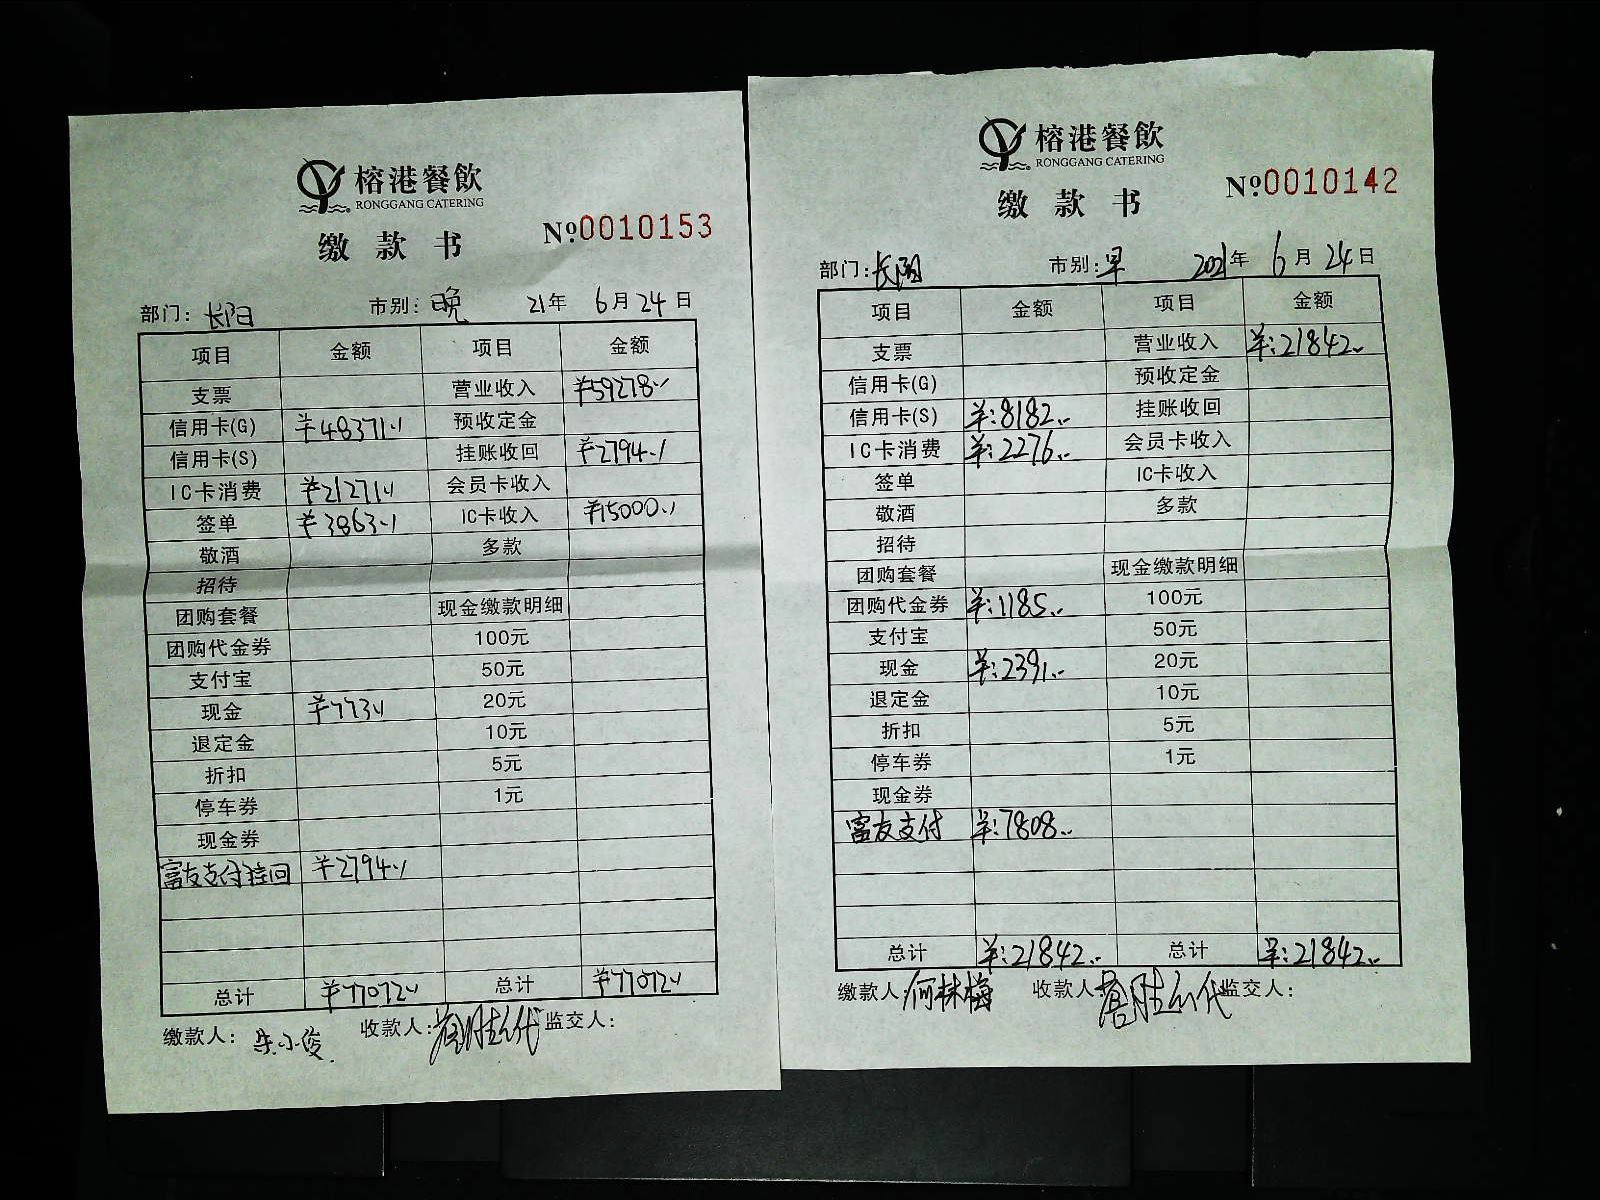 榕港餐飲
RONGGANG CATERING
缴款书
№0010153
部门: 长阳 市别: 晚 21年 6月 24日
项目 金额 项目 金额
支票 营业收入 ¥59278.
信用卡(G) ¥48371. 预收定金
信用卡(S) 挂账收回 ¥2794.
IC卡消费 ¥21271. 会员卡收入
签单 ¥3863. IC卡收入 ¥15000.
敬酒 多款
招待
团购套餐 现金缴款明细
团购代金券 100元
支付宝 50元
现金 ¥773. 20元
退定金 10元
折扣 5元
停车券 1元
现金券
富友支付挂回 ¥2794.
总计 ¥77072. 总计 ¥77072.
缴款人: 朱小俊. 收款人: 代 监交人:
榕港餐飲
RONGGANG CATERING
缴款书
№0010142
部门: 长阳 市别: 早 2021年 6月 24日
项目 金额 项目 金额
支票 营业收入 ¥:21842..
信用卡(G) 预收定金
信用卡(S) ¥:8182.. 挂账收回
IC卡消费 ¥:2276.. 会员卡收入
签单 IC卡收入
敬酒 多款
招待
团购套餐 现金缴款明细
团购代金券 ¥:1185.. 100元
支付宝 50元
现金 ¥:2391.. 20元
退定金 10元
折扣 5元
停车券 1元
现金券
富友支付 ¥:7808..
总计 ¥:21842.. 总计 ¥:21842..
缴款人: 何林梅 收款人: 代 监交人: